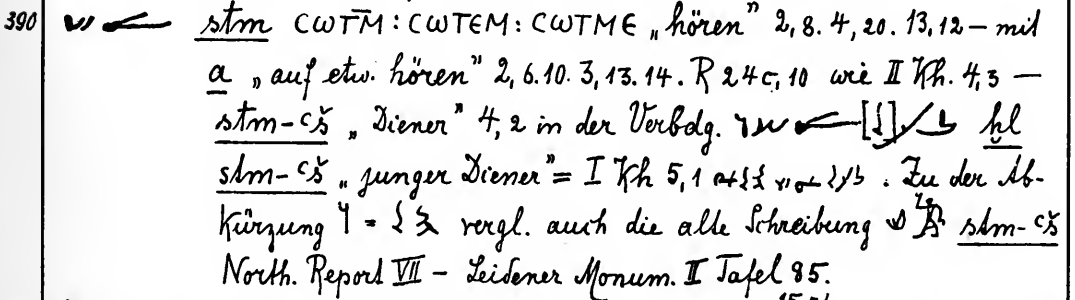 390 stm CWTM̄ : CWTEM : CWTME „hören" 2, 8. 4, 20. 13, 12 – mit
a „auf etw. hören" 2, 6. 10. 3, 13. 14. R 24c, 10 wie II Kh. 4, 3 –
stm-ꜥš „Diener" 4, 2 in der Verbdg. ẖl
stm-ꜥš „junger Diener" = I Kh 5, 1 . Zu der Ab-
kürzung = vergl. auch die alte Schreibung stm-ꜥš
North. Report VII – Leidener Monum. II Tafel 95.